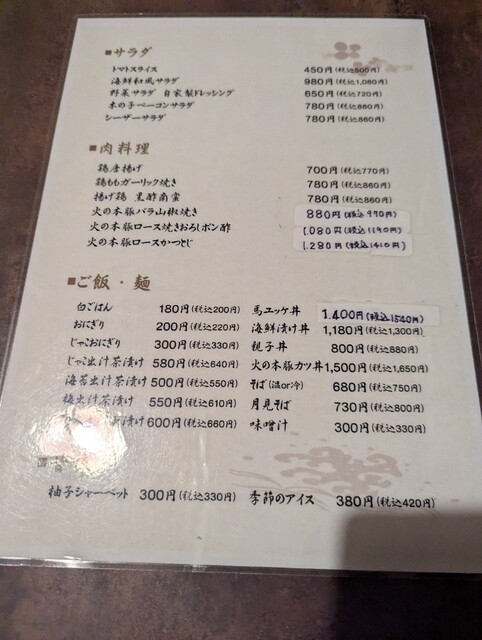 ■サラダ
トマトスライス 450円(税込500円)
海鮮和風サラダ 980円(税込1,080円)
野菜サラダ 自家製ドレッシング 650円(税込720円)
木の子ベーコンサラダ 780円(税込860円)
シーザーサラダ 780円(税込860円)
■肉料理
鶏唐揚げ 700円(税込770円)
鶏ももガーリック焼き 780円(税込860円)
揚げ鶏 黒酢南蛮 780円(税込860円)
火の本豚バラ山椒焼き 880円(税込970円)
火の本豚ロース焼きおろしポン酢 1.080円(税込1190円)
火の本豚ロースかつとじ 1.280円(税込1410円)
■ご飯・麺
白ごはん 180円(税込200円) 馬ユッケ丼 1.400円(税込1540円)
おにぎり 200円(税込220円) 海鮮漬け丼 1,180円(税込1,300円)
じゃこおにぎり 300円(税込330円) 親子丼 800円(税込880円)
じゃこ出汁茶漬け 580円(税込640円) 火の本豚カツ丼 1,500円(税込1,650円)
海苔出汁茶漬け 500円(税込550円) そば(温or冷) 680円(税込750円)
梅出汁茶漬け 550円(税込610円) 月見そば 730円(税込800円)
茶漬け 600円(税込660円) 味噌汁 300円(税込330円)
柚子シャーベット 300円(税込330円) 季節のアイス 380円(税込420円)